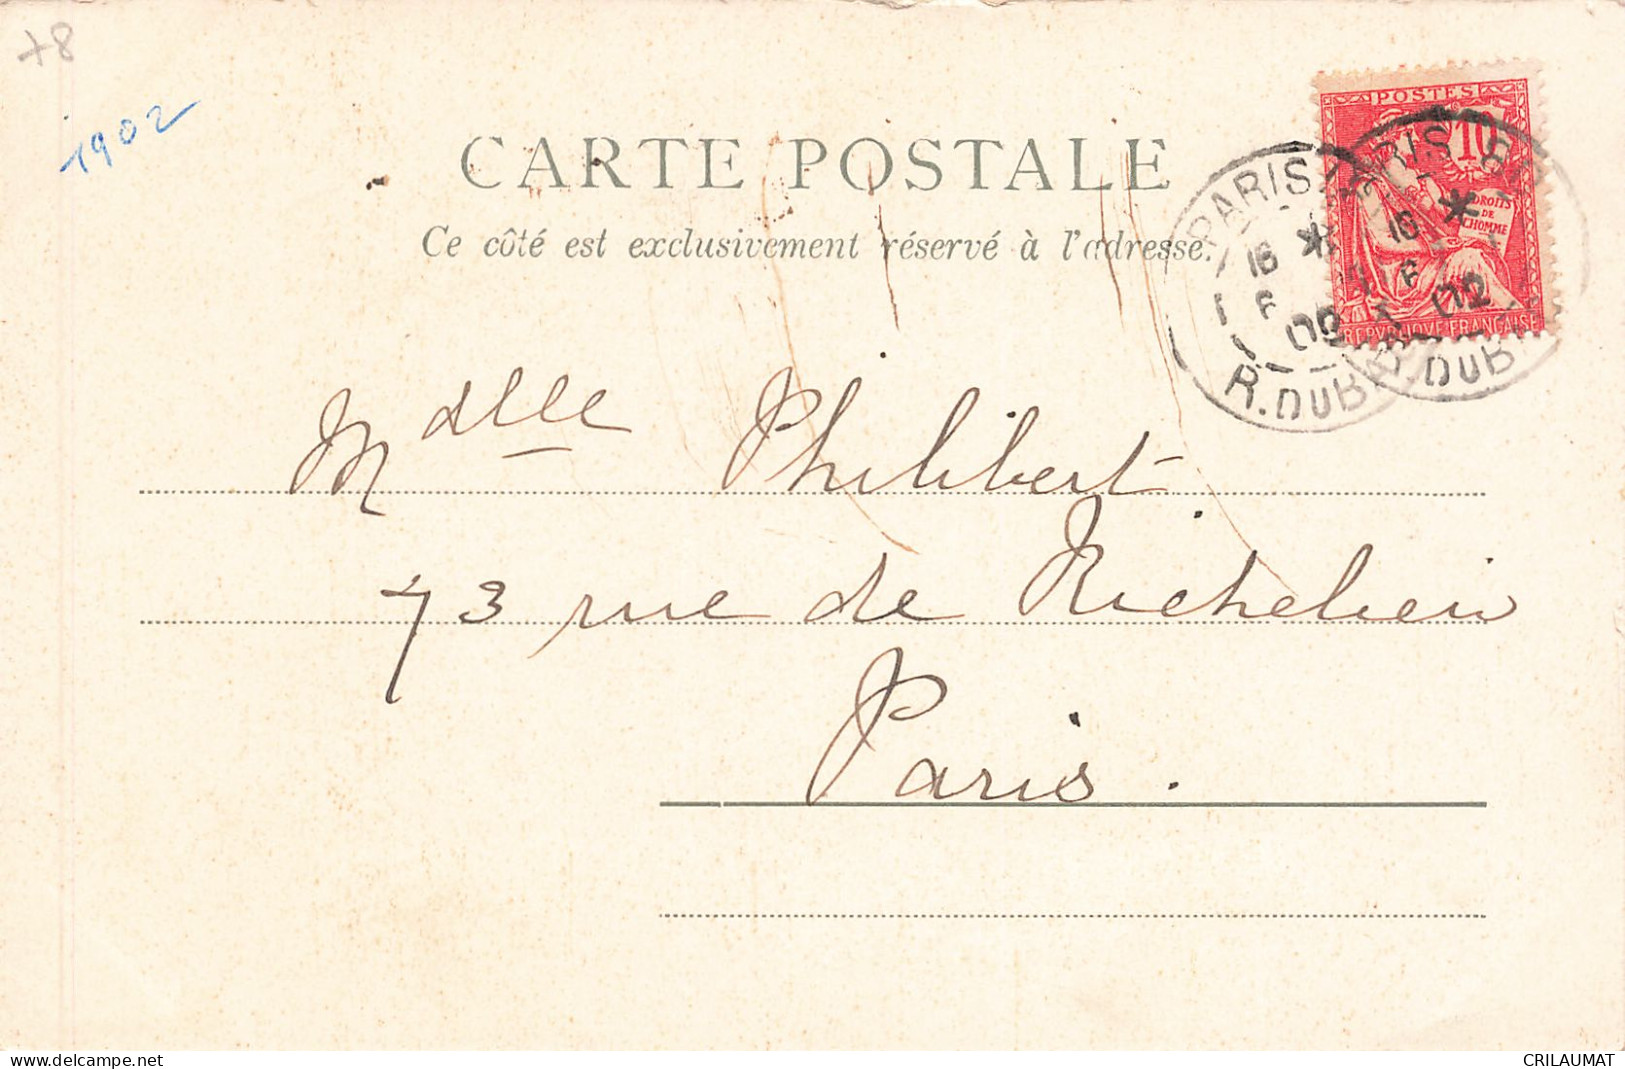 +8
1902
CARTE POSTALE
Ce côté est exclusivement réservé à l'adresse.
POSTES
10
DROITS
DE
L'HOMME
REPUBLIQUE FRANÇAISE
PARIS
16
6
02
R. DU
PARIS
16
6
02
R. DU
Mdlle Philibert
73 rue de Richelieu
Paris.
www.delcampe.net
CRILAUMAT